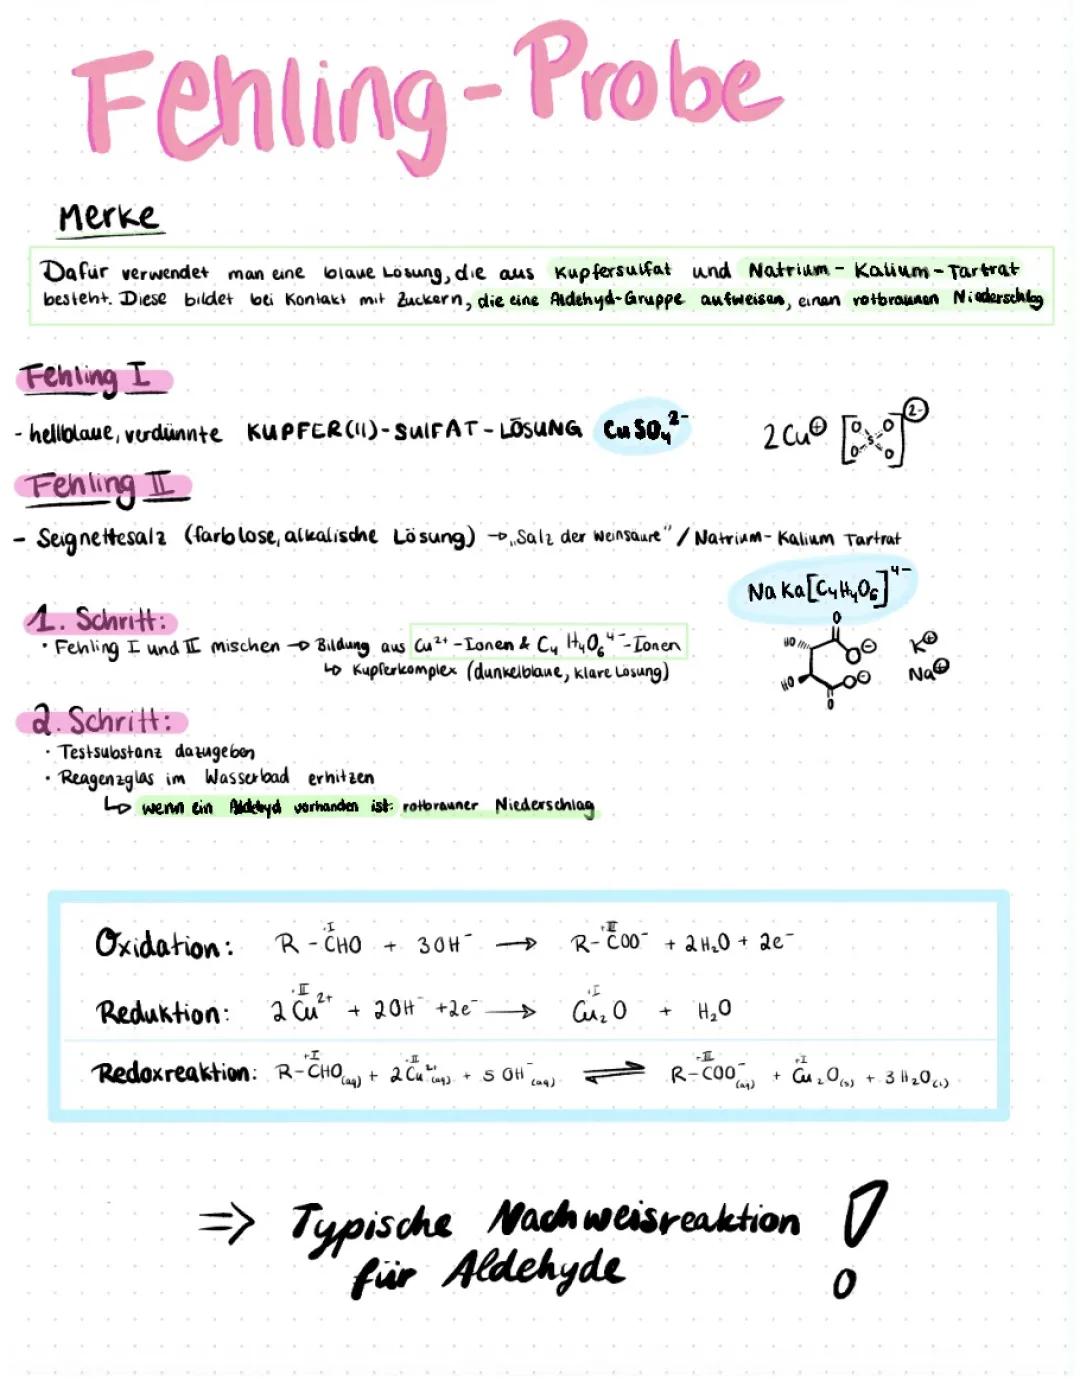 Fehling-Probe
Merke
Dafür verwendet man eine blaue Lösung, die aus Kupfersulfat und Natrium-Kalium-Tartrat
besteht. Diese bildet bei Kontakt mit Zuckern, die eine Aldehyd-Gruppe aufweisen, einen rotbraunen Niederschlag
Fehling I
- hellblaue, verdünnte KUPFER(II)-SUlFAT-LÖSUNG CuSO₄²⁻
2Cu⊕ [O O S O O]²⁻
Fehling II
- Seignettesalz (farblose, alkalische Lösung) → „Salz der Weinsäure" / Natrium-Kalium Tartrat
NaKa[C₄H₄O₆]⁴⁻
O
HO O⊖ K⊕
HO O⊖ Na⊕
O
1. Schritt:
· Fehling I und II mischen → Bildung aus Cu²⁺-Ionen & C₄H₄O₆⁴⁻-Ionen
↳ Kupferkomplex (dunkelblaue, klare Lösung)
2. Schritt:
· Testsubstanz dazugeben
· Reagenzglas im Wasserbad erhitzen
↳ wenn ein Aldehyd vorhanden ist: rotbrauner Niederschlag
+I +III
Oxidation: R-CHO + 3OH⁻ → R-COO⁻ + 2H₂O + 2e⁻
+II +I
Reduktion: 2Cu²⁺ + 2OH⁻ +2e⁻ → Cu₂O + H₂O
+I +II +III +I
Redoxreaktion: R-CHO(aq) + 2Cu²⁺(aq) + 5OH⁻(aq) ⇌ R-COO⁻(aq) + Cu₂O(s) + 3H₂O(l)
⇒ Typische Nachweisreaktion
für Aldehyde !